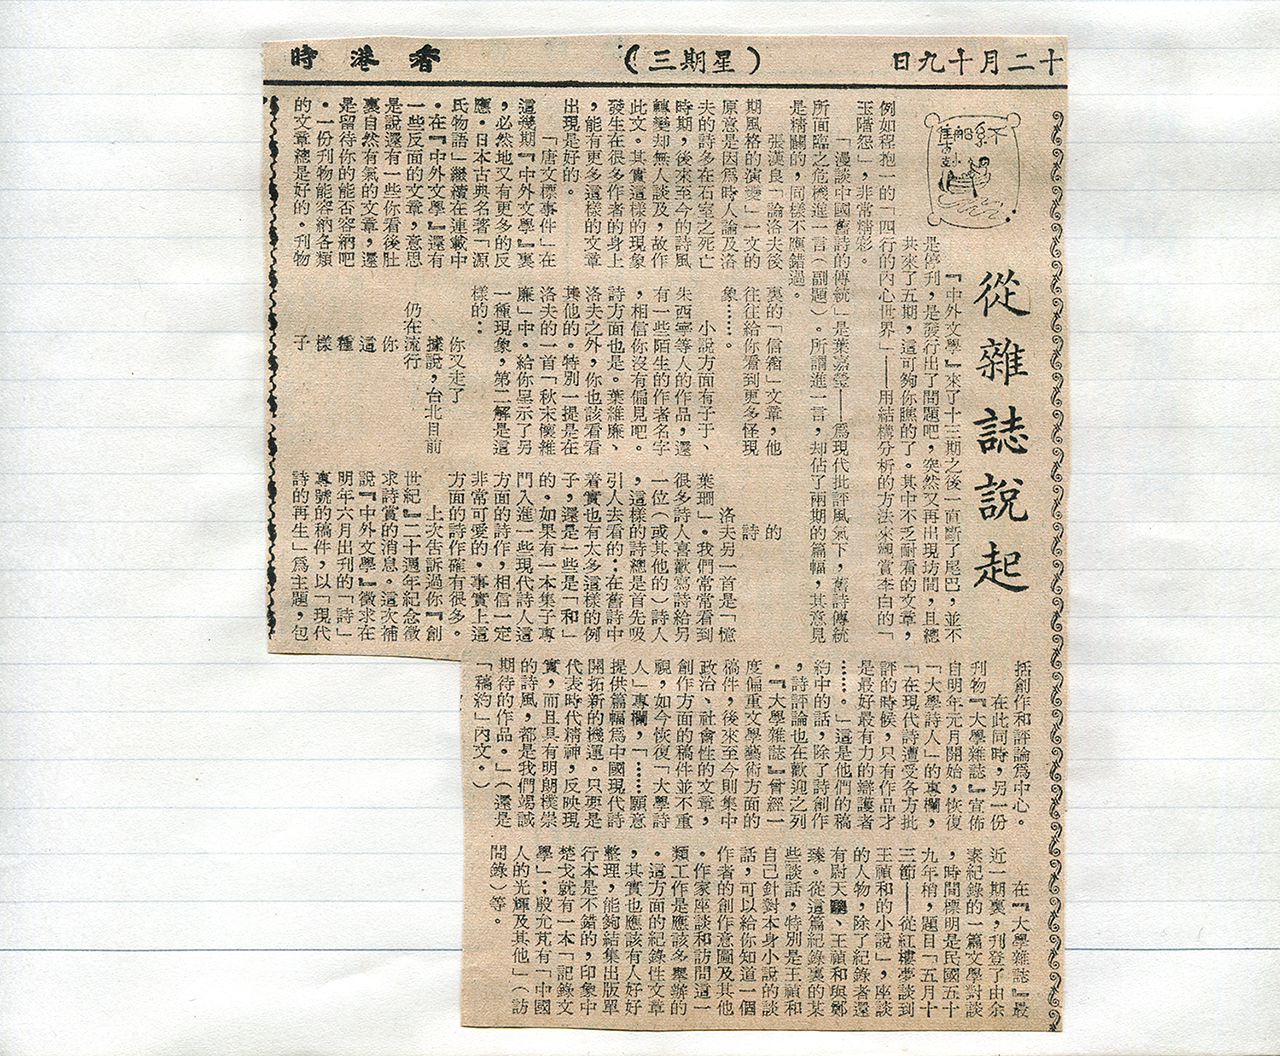 十二月十九日
（星期三）
香港時
從雜誌說起
『中外文學』來了十三期之後一直斷了尾巴，並不
是停刊，是發行出了問題吧，突然又再出現坊間，且總
共來了五期，這可夠你瞧的了。其中不乏耐看的文章，
例如程抱一的「四行的內心世界」——用結構分析的方法來觀賞李白的「
玉階怨」，非常精彩。
「漫談中國舊詩的傳統」是葉嘉瑩——爲現代批評風氣下，舊詩傳統
所面臨之危機進一言（副題）。所謂進一言，却佔了兩期的篇幅，其意見
是精闢的，同樣不應錯過。
張漢良「論洛夫後
期風格的演變」一文的
原意是因爲時人論及洛
夫的詩多在石室之死亡
時期，後來至今的詩風
轉變却無人談及，故作
此文。其實這樣的現象
發生在很多作者的身上
，能有更多這樣的文章
出現是好的。
「唐文標事件」在
這幾期『中外文學』裏
，必然地又有更多的反
應。日本古典名著「源
氏物語」繼續在連載中
。在『中外文學』還有
一些反面的文章，意思
是說還有一些你看後肚
裏自然有氣的文章，還
是留待你的能否容納吧
。一份刊物能容納各類
的文章總是好的。刊物
裏的「信箱」文章，他
往往給你看到更多怪現
象……。
小說方面有子于、
朱西寧等人的作品，還
有一些陌生的作者名字
，相信你沒有偏見吧。
詩方面也是。葉維廉、
洛夫之外，你也該看看
其他的。特別一提是在
洛夫的一首「秋末懷維
廉」中。給你呈示了另
一種現象，第二解是這
樣的：
你又走了
據說，台北目前
仍在流行
你
這
種
樣
子
的
詩
洛夫另一首是「憶
葉珊」。我們常常看到
很多詩人喜歡寫詩給另
一位（或其他的）詩人
，這樣的詩總是首先吸
引人去看的。在舊詩中
着實也有太多這樣的例
子，還是一些是「和」
的。如果有一本集子專
門入進一些現代詩人這
方面的詩作，相信一定
非常可愛的。事實上這
方面的詩作確有很多。
上次告訴過你『創
世紀』二十週年紀念徵
求詩賞的消息。這次補
說『中外文學』徵求在
明年六月出刊的「詩」
專號的稿件，以「現代
詩的再生」爲主題，包
括創作和評論爲中心。
在此同時，另一份
刊物『大學雜誌』宣佈
自明年元月開始，恢復
「大學詩人」的專欄，
「在現代詩遭受各方批
評的時候，只有作品才
是最好最有力的辯護者
……。」這是他們的稿
約中的話，除了詩創作
，詩評論也在歡迎之列
。『大學雜誌』曾經一
度偏重文學藝術方面的
稿件，後來至今則集中
政治、社會性的文章，
創作方面的稿件並不重
視，如今恢復「大學詩
人」專欄，「……願意
提供篇幅爲中國現代詩
開拓新的機運。只要是
代表時代精神，反映現
實，而且具有明朗樸崇
的詩風，都是我們竭誠
期待的作品。」（還是
「稿約」內文。）
在『大學雜誌』最
近一期裏，刊登了由余
素紀錄的一篇文學對談
，時間標明是民國五十
九年稍，題目「五月十
三節——從紅樓夢談到
王禎和的小說」，座談
的人物，除了紀錄者還
有尉天驄、王禎和與鄭
臻。從這篇紀錄裏的某
些談話，特別是王禎和
自己針對本身小說的談
話，可以給你知道一個
作者的創作意圖及其他
。作家座談和訪問這一
類工作是應該多舉辦的
。這方面的紀錄性文章
，其實也應該有人好好
整理，能夠結集出版單
行本是不錯的，印象中
楚戈就有一本「記錄文
學」；殷允芃有「中國
人的光輝及其他」（訪
問錄）等。